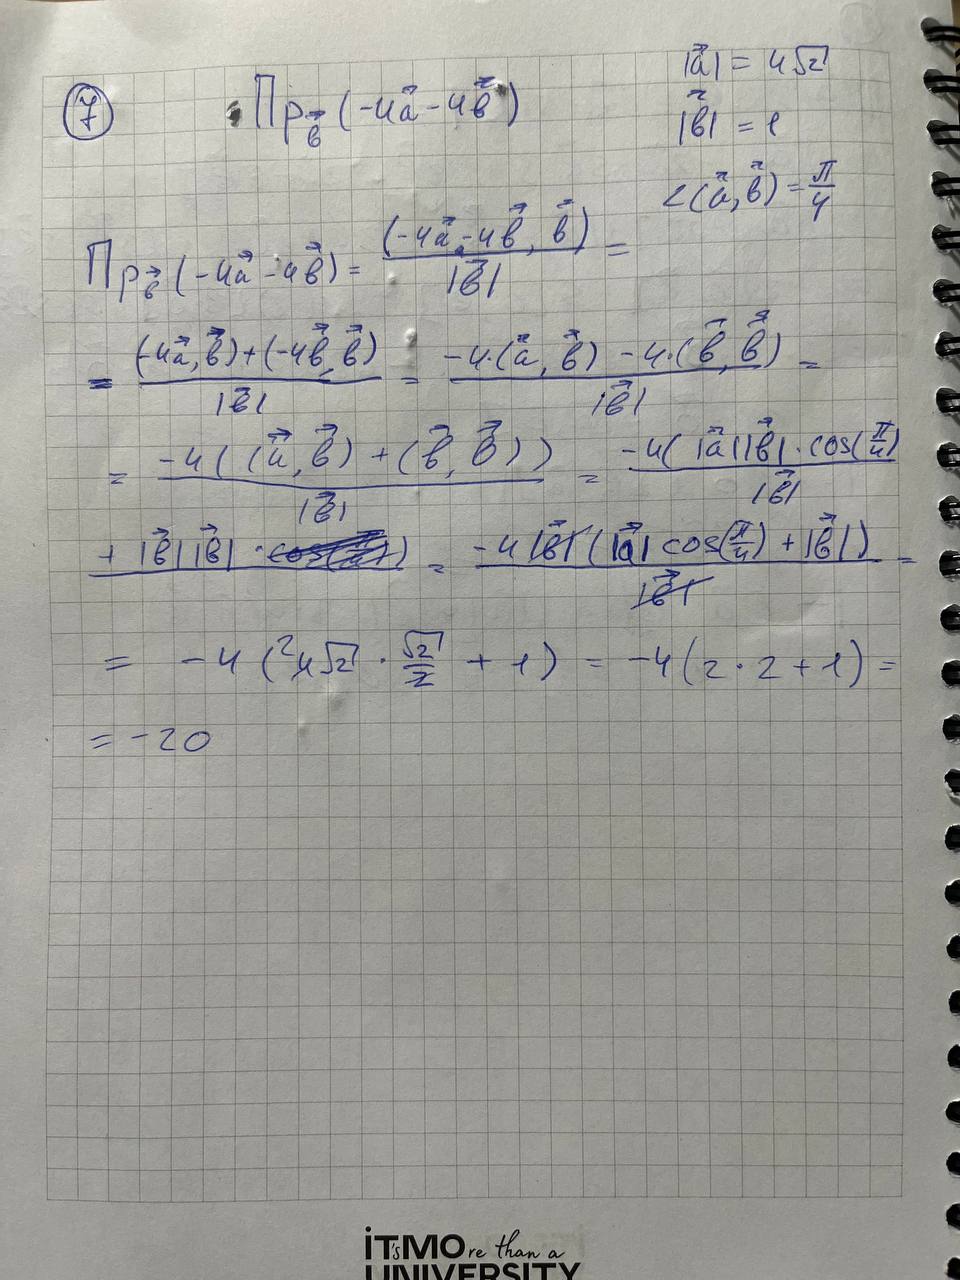 |a⃗| = 4√2
7 Пр_b⃗ (-4a⃗ -4b⃗)
|b⃗| = 1
∠(a⃗, b⃗) = π/4
Пр_b⃗ (-4a⃗ -4b⃗) = (-4a⃗ -4b⃗, b⃗) / |b⃗| =
= ((-4a⃗, b⃗) + (-4b⃗, b⃗)) / |b⃗| = (-4·(a⃗, b⃗) -4·(b⃗, b⃗)) / |b⃗| =
= -4((a⃗, b⃗) + (b⃗, b⃗)) / |b⃗| = -4(|a⃗||b⃗|·cos(π/4) / |b⃗|
+ |b⃗||b⃗|·) = -4|b⃗|(|a⃗| cos(π/4) + |b⃗|) / |b⃗| =
= -4(²4√2 · √2/2 + 1) = -4(2·2+1) =
= -20
iT'sMOre than a
UNIVERSITY